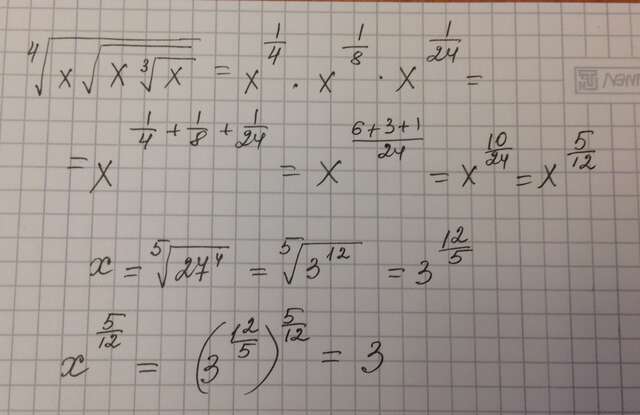 ⁴√(x√(x ³√x)) = x^(1/4) · x^(1/8) · x^(1/24) =
= x^(1/4 + 1/8 + 1/24) = x^((6+3+1)/24) = x^(10/24) = x^(5/12)
x = ⁵√(27⁴) = ⁵√(3¹²) = 3^(12/5)
x^(5/12) = (3^(12/5))^(5/12) = 3